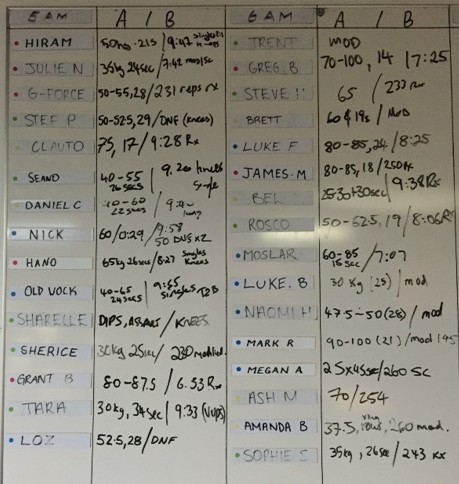 5 AM A / B
HIRAM 50kg, 21s / 9:42 singles knees
JULIE N 35kg 24sec / 7:42 mod/sc
G-FORCE 50-55, 28 / 231 reps rx
STEF P 50-52.5, 29 / DNF (knees)
CLAUTO 75, 17 / 9:28 Rx
SEANO 40-55 26secs / 9.20 knees single
DANIEL C 40-60 22secs
NICK 60/0:29 / 9:58 50 DUS x2
HANO 65kg 26sec / 8:27 Singles Knees
OLD VOCK 40-65 24secs / 9:55 Singles T2B
SHARELLE DIPS, / KNEES
SHERICE 30kg 25sec / 230 modified.
GRANT B 80-87.5 / 6.53 Rx
TARA 30kg, 34sec / 9:33 (VUPS)
LOZ 52.5, 28 / DNF
6 AM A / B
TRENT MOD
GREG.B 70-100, 14 / 7:25
STEVE H 65 / 233 Rx
BRETT 60 @ 19s / MOD
LUKE F 80-85, 24 / 8:25
JAMES.M 80-85, 18 / 250 Rx
BEL 25-30+30sec / 9:38 Rx
ROSCO 50-52.5, 19 / 8:06 Rx
MOSLAR 60-85 15sec / 7:07
LUKE.B 30 kg (25) / mod
NAOMI H 47.5-50 (28) / mod
MARK R 90-100 (21) / mod 195
MEGAN A 25x45sec / 260 SC
ASH M 70 / 254
AMANDA B 37.5, 260 mod.
SOPHIE S 35kg, 26sec / 243 rx